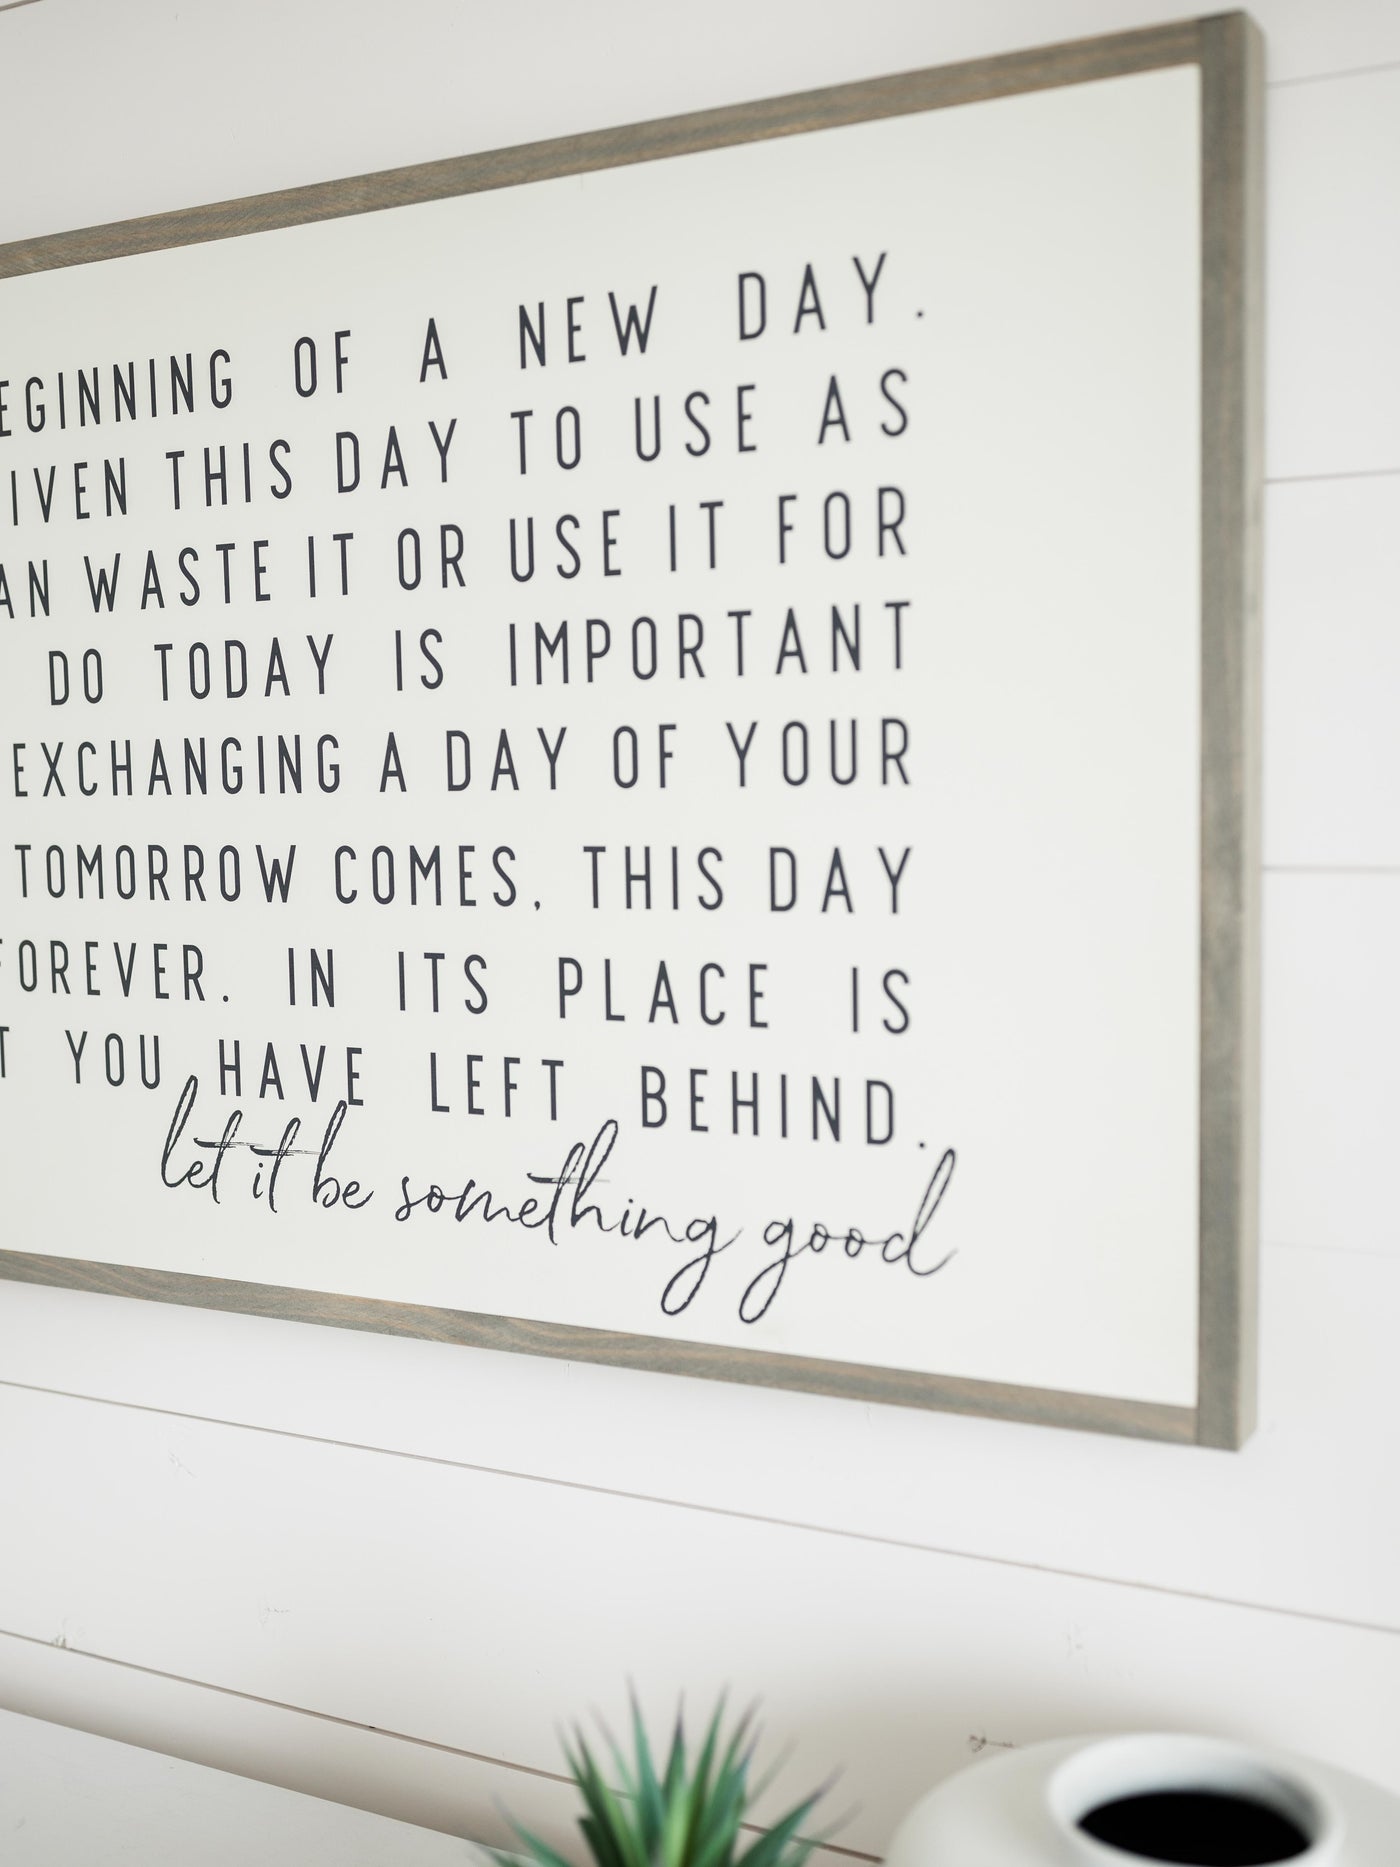 EGINNING OF A NEW DAY.
IVEN THIS DAY TO USE AS
AN WASTE IT OR USE IT FOR
DO TODAY IS IMPORTANT
EXCHANGING A DAY OF YOUR
TOMORROW COMES, THIS DAY
FOREVER. IN ITS PLACE IS
T YOU HAVE LEFT BEHIND.
let it be something good